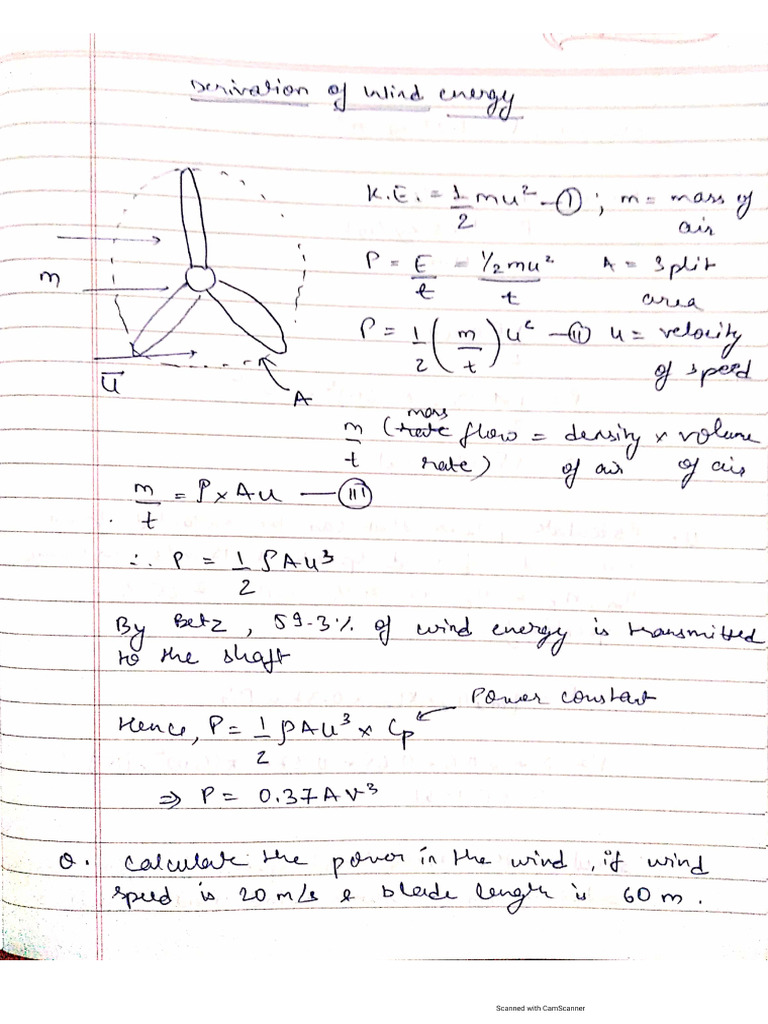 Derivation of Wind energy
K.E. = 1/2 mu² — (I) ; m = mass of air
P = E/t = ½mu²/t A = split area
P = 1/2 (m/t) u² — (II) u = velocity of speed
m
u
A
m/t (mass flow rate) = density of air × volume of air
m/t = ρ × Au — (III)
∴ P = 1/2 ρAu³
By Betz, 59.3% of wind energy is transmitted
to the shaft
Power constant
Hence, P = 1/2 ρAu³ × Cp
⇒ P = 0.37AV³
Q. Calculate the power in the wind, if wind
speed is 20 m/s & blade length is 60 m.
Scanned with CamScanner